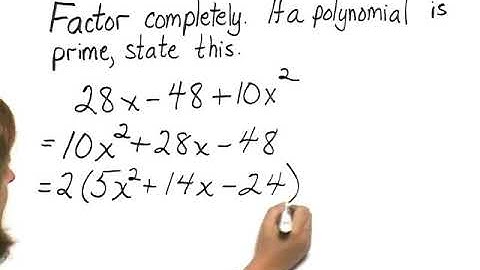 Factor completely. If a polynomial is
prime, state this.
28x - 48 + 10x²
= 10x² + 28x - 48
= 2(5x² + 14x - 24)